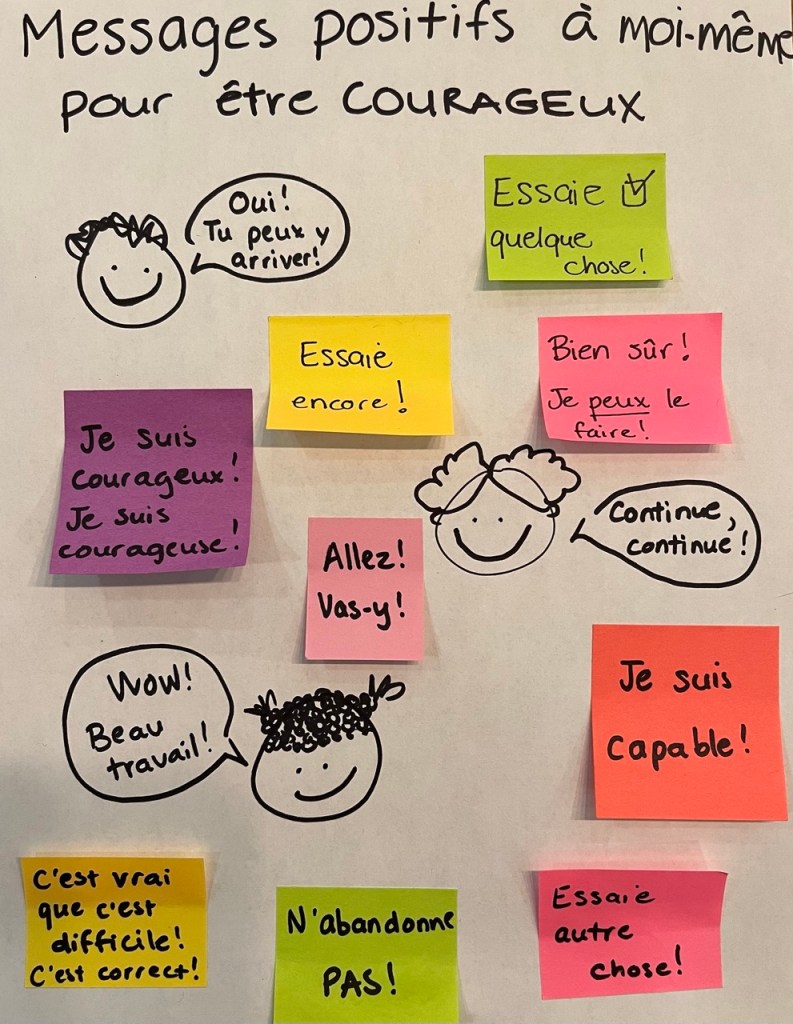 Messages positifs à moi-même
pour être COURAGEUX
Oui!
Tu peux y
arriver!
Essaie
quelque
chose!
Essaie
encore!
Bien sûr!
Je peux le
faire!
Je suis
courageux!
Je suis
courageuse!
Continue,
continue!
Allez!
Vas-y!
Wow!
Beau
travail!
Je suis
capable!
C'est vrai
que c'est
difficile!
C'est correct!
N'abandonne
PAS!
Essaie
autre
chose!